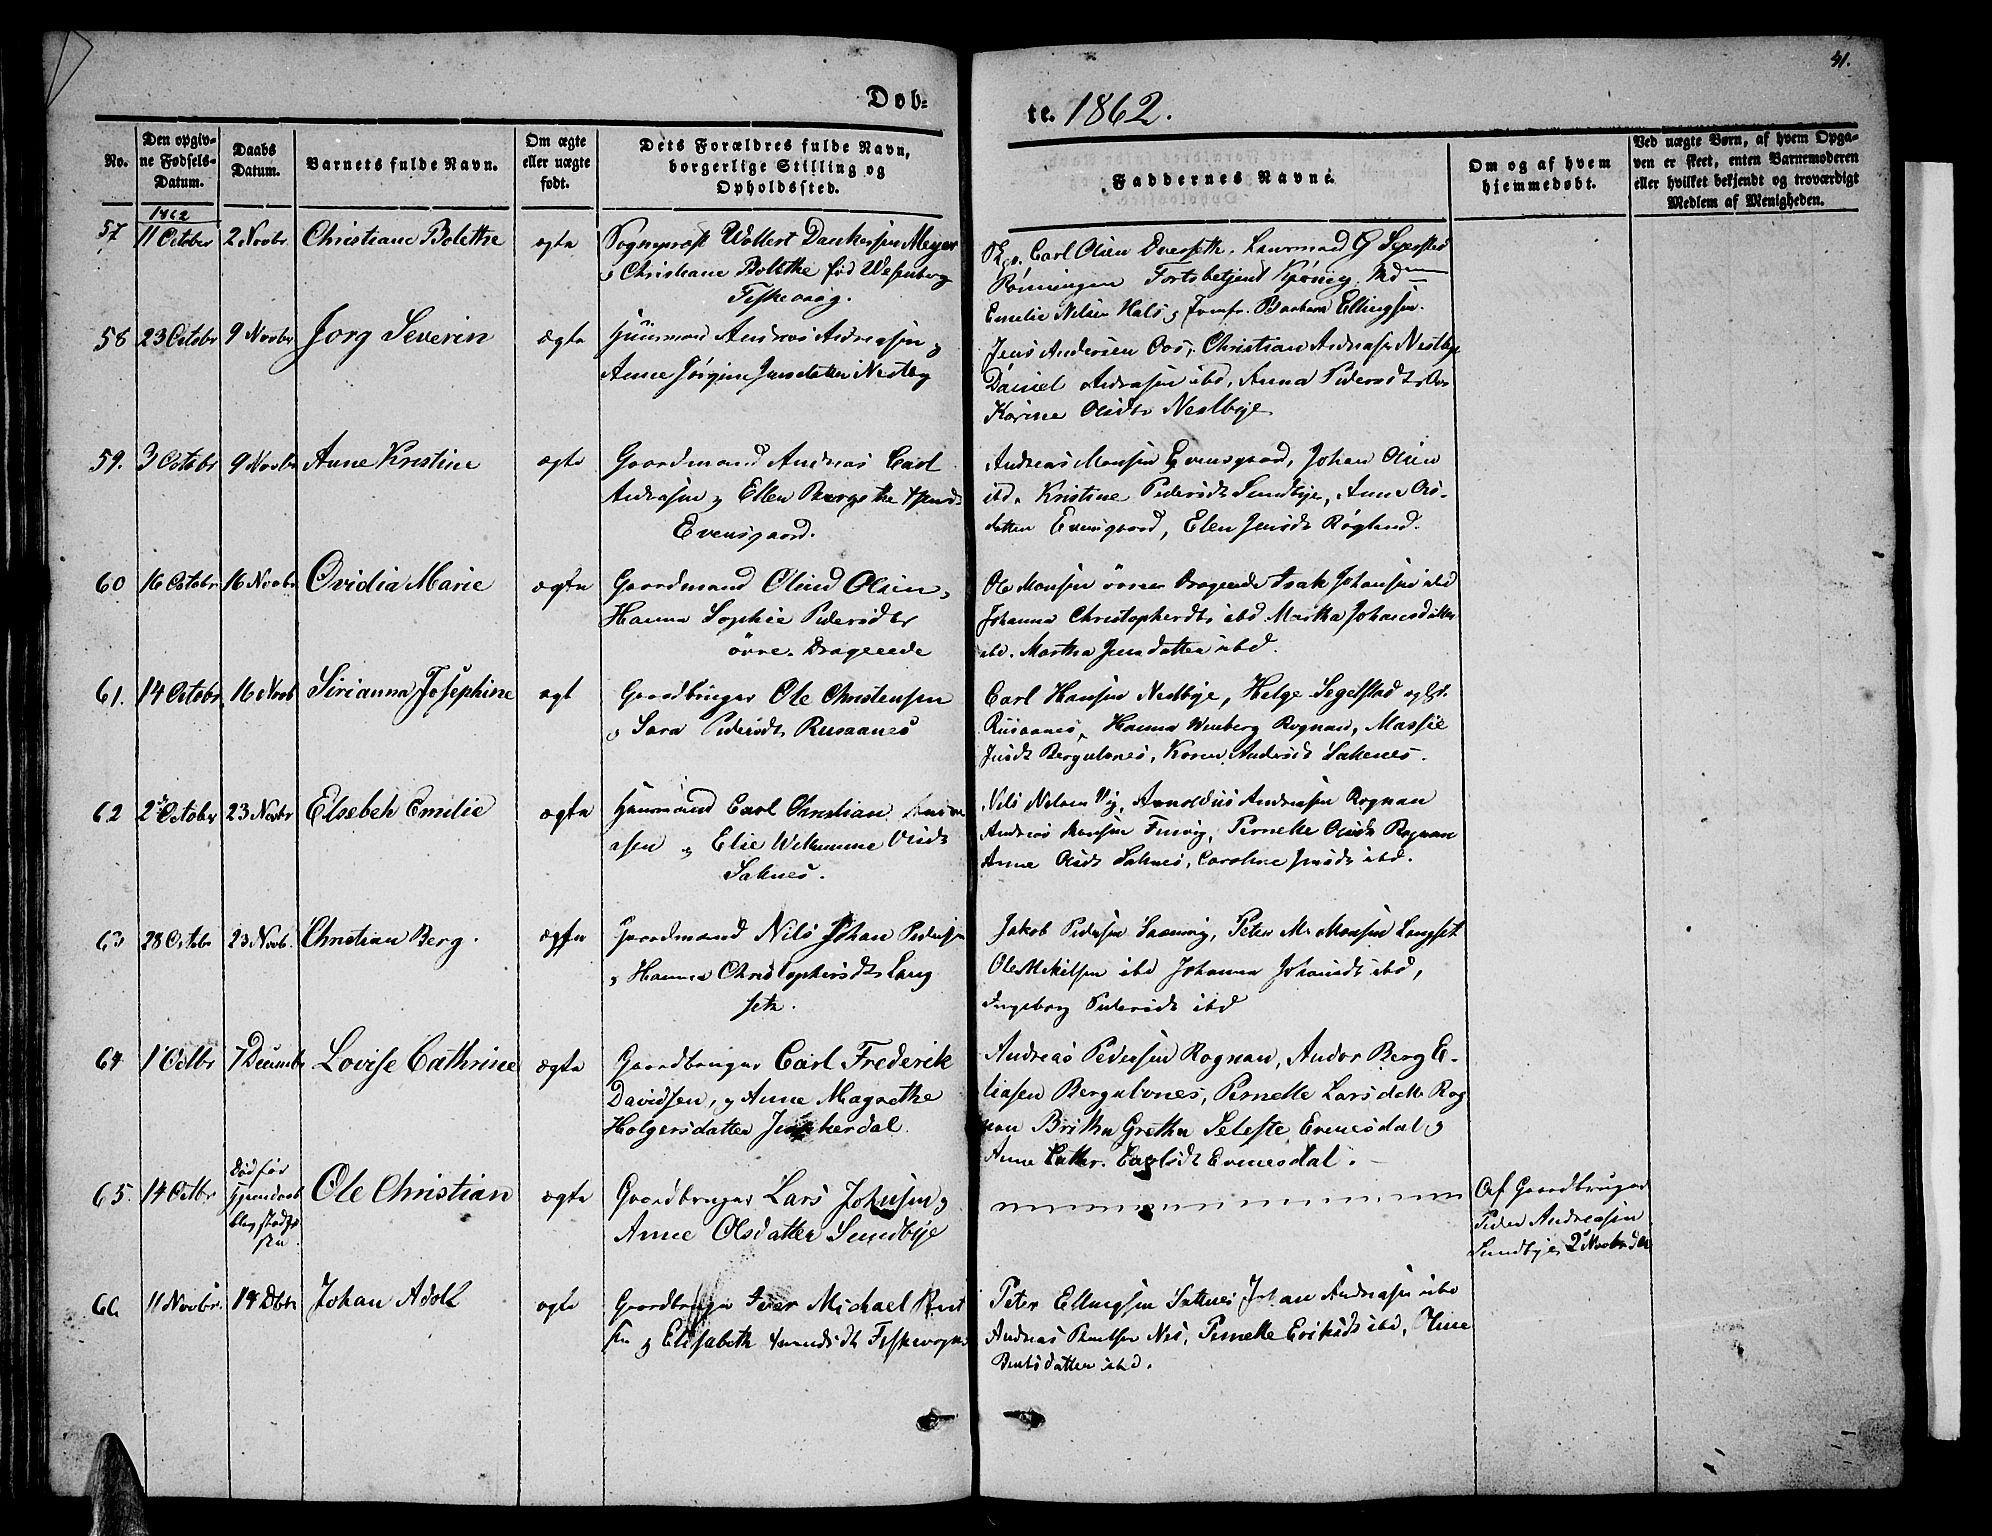 41.
Døb-
te. 1862.
No.
Den opgiv-
ne Fødsels-
Datum.
Daabs
Datum.
Barnets fulde Navn.
Om ægte
eller uægte
født.
Dets Forældres fulde Navn,
borgerlige Stilling og
Opholdssted.
Faddernes Navne.
Om og af hvem
hjemmedøbt.
Ved uægte Børn, af hvem Opga-
ven er skeet, enten Barnemoderen
eller hvilket bekjendt og troværdigt
Medlem af Menigheden.
1862
57 11 October 2 Novbr Christiane Bolethe ægte Sogneprest Wollert Danckertsen Meyer
og Christiane Bolethe fød Wesenberg
Fiskevaag.
Carl Olsen
Emelie Nelsen Hals, Jomfr. Barbara Ellingsen.
58 23 Octobr 9 Novbr Jorg Severin ægte Huusmand Andreas Andreasen og
Anne Jørgine Jensdatter Nestby
Jens Andersen Christian Andreasen Nestbye
Daniel Andreasen ibd, Anna Pedersdtr
Karine Olsdtr Nestbye
59. 3 Octobr 9 Novbr Anne Kristine ægte Gaardmand Andreas Carl
Andreasen og Ellen Bergethe
Evensgaard.
Andreas Monsen Evensgaard, Johan Olsen
ibd, Kristine Pedersdt Sundbye, Anne Ols-
datter Evensgaard, Elen Jensdt Røgland.
60 16 Octobr 16 Novbr Ovidia Marie ægte Gaardmand Olind Olsen,
Hanna Sophie Pedersdtr
övre. Drageeide
Ole Monsen övre Drageeide Isak Johansen ibd
Johanna Christophersdtr ibd. Martha Johansdatter
ibd. Martha Jensdatter ibd.
61. 14 Octobr 16 Novb Sirianna Josephine ægt Gaardbruger Ole Christensen
og Sara Pedersdt Rusaanes
Carl Hansen Nestbye, Helge Segelstad
Rusaanes, Hanna Wenberg Rognan, Massie
Jensdt Bergulvnes, Karen Andersdt Saksnes.
62 2 October 23 Novbr Elsebeh Emilie ægte Huusmand Carl Christian
asen og Elie Wilhumine Olsdt
Saknes.
Nils Nelsen Vig, Arnoldus Andreasen Rognan
Andreas Monsen Pernelle Olsdt Rognan
Anne Olsdt Saknes, Caroline Jensdt ibd.
63 28 Octobr 23 Novb. Christian Berg. ægte Gaardmand Nils Johan Pedersen
og Hanna Christophersdt Lang
seth.
Jakob Pedersen Peter M. Monsen Langset
Ole Mikelsen ibd Johanna Johansdt ibd,
Ingeborg Pedersdt ibd
64 1 Octbr 7 Decembr Lovise Cathrine ægte Gaardbruger Carl Frederik
Davidsen, og Anne Magrethe
Holgersdatter Junkerdal.
Andreas Pedersen Rognan, Andor Berg E-
liasen Bergulvnes, Pernelle Larsdatter Rog
nan Britha Gretha Seleste Evenesdal og
Anne Cathr. Evenesdal.
65. 14 Octbr Død før
Ole Christian ægte Gaardbruger Lars Johnsen og
Anne Olsdatter Sundbye
Af Gaardbruger
Peder Andreasen
Sundbye 2 Novbr
66 11 Novbr. 14 Dcbr Johan Adolf ægte Gaardbruger Iver Michael Bent
sen og Elisabeth
Peter Ellingsen Saltnes Johan Andreasen ibd
Andreas Pernelle Eriksdt ibd, Oline
Bentsdatter ibd.